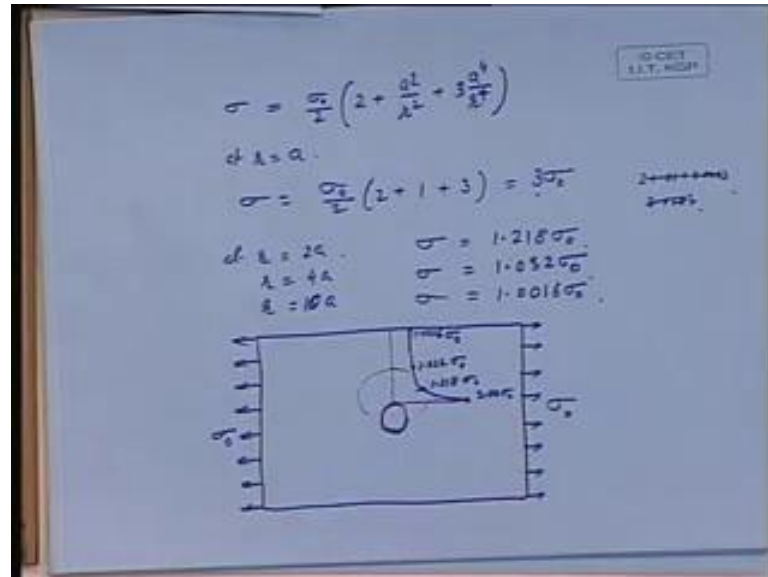 © CET
I.I.T. KGP
σ = σ₀/2 (2 + a²/r² + 3 a⁴/r⁴)
at r = a.
σ = σ₀/2 (2 + 1 + 3) = 3σ₀
at r = 2a. σ = 1.218σ₀.
r = 4a σ = 1.032σ₀.
r = 10a σ = 1.0016σ₀.
1.218σ₀
σ₀ σ₀